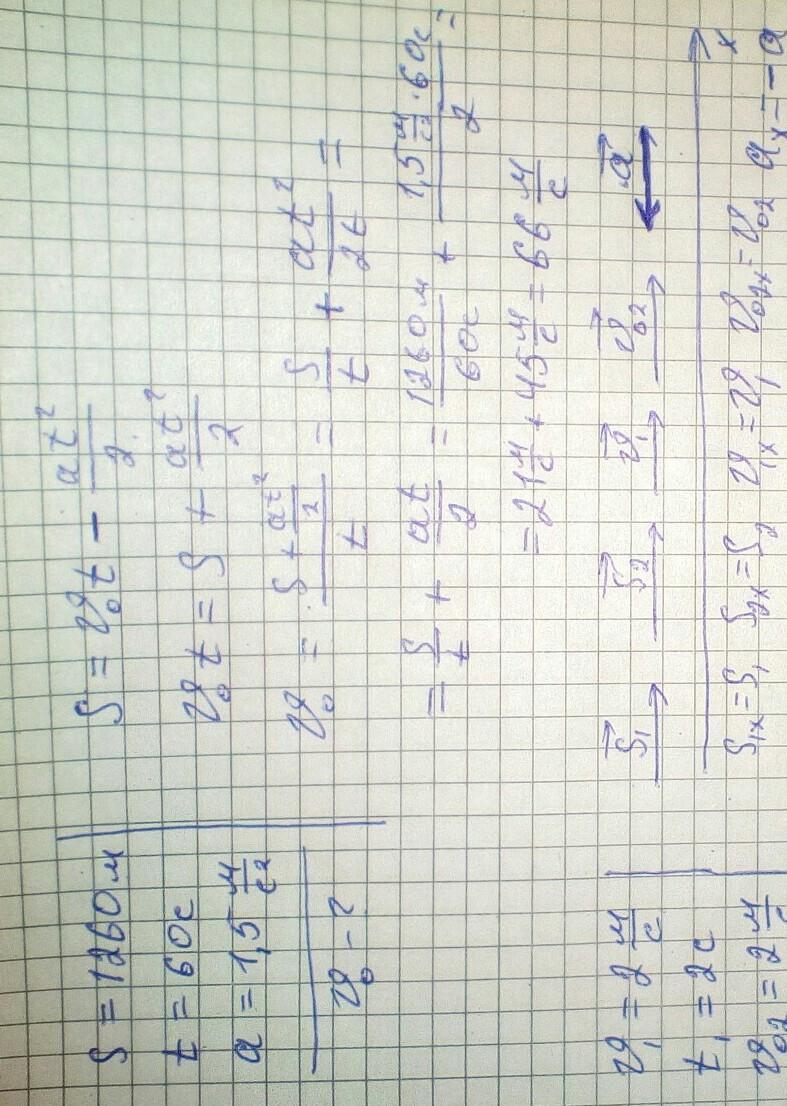 S = 1260 м
t = 60 с
a = 1,5 м/с²
v₀ - ?
S = v₀t - at²/2
v₀t = S + at²/2
v₀ = (S + at²/2)/t = S/t + at²/2t =
= S/t + at/2 = 1260 м/60 с + (1,5 м/с² · 60 с)/2 =
= 21 м/с + 45 м/с = 66 м/с
v₁ = 2 м/с
t₁ = 2 с
v₀₂ = 2 м/с
S₁ S₂ v₁ v₀₂ a
x
S₁ₓ = S₁ S₂ₓ = S₂ v₁ₓ = v₁ v₀₂ₓ = v₀₂ aₓ = -a